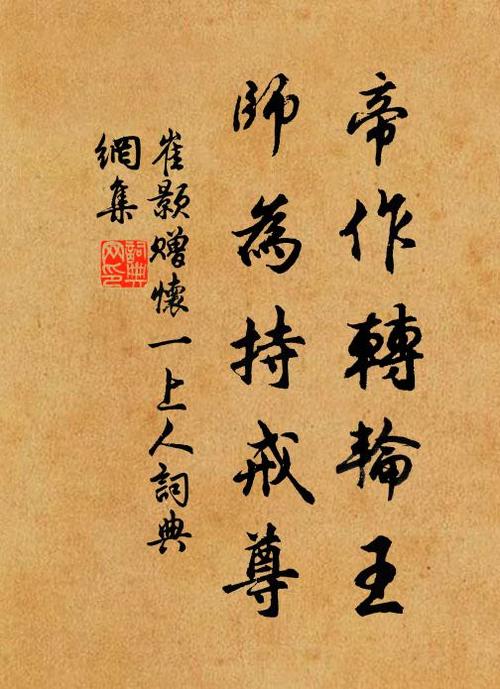 帝作轉輪王
師為持戒尊
崔顥贈懷一上人詞典
網集
詞典
网印